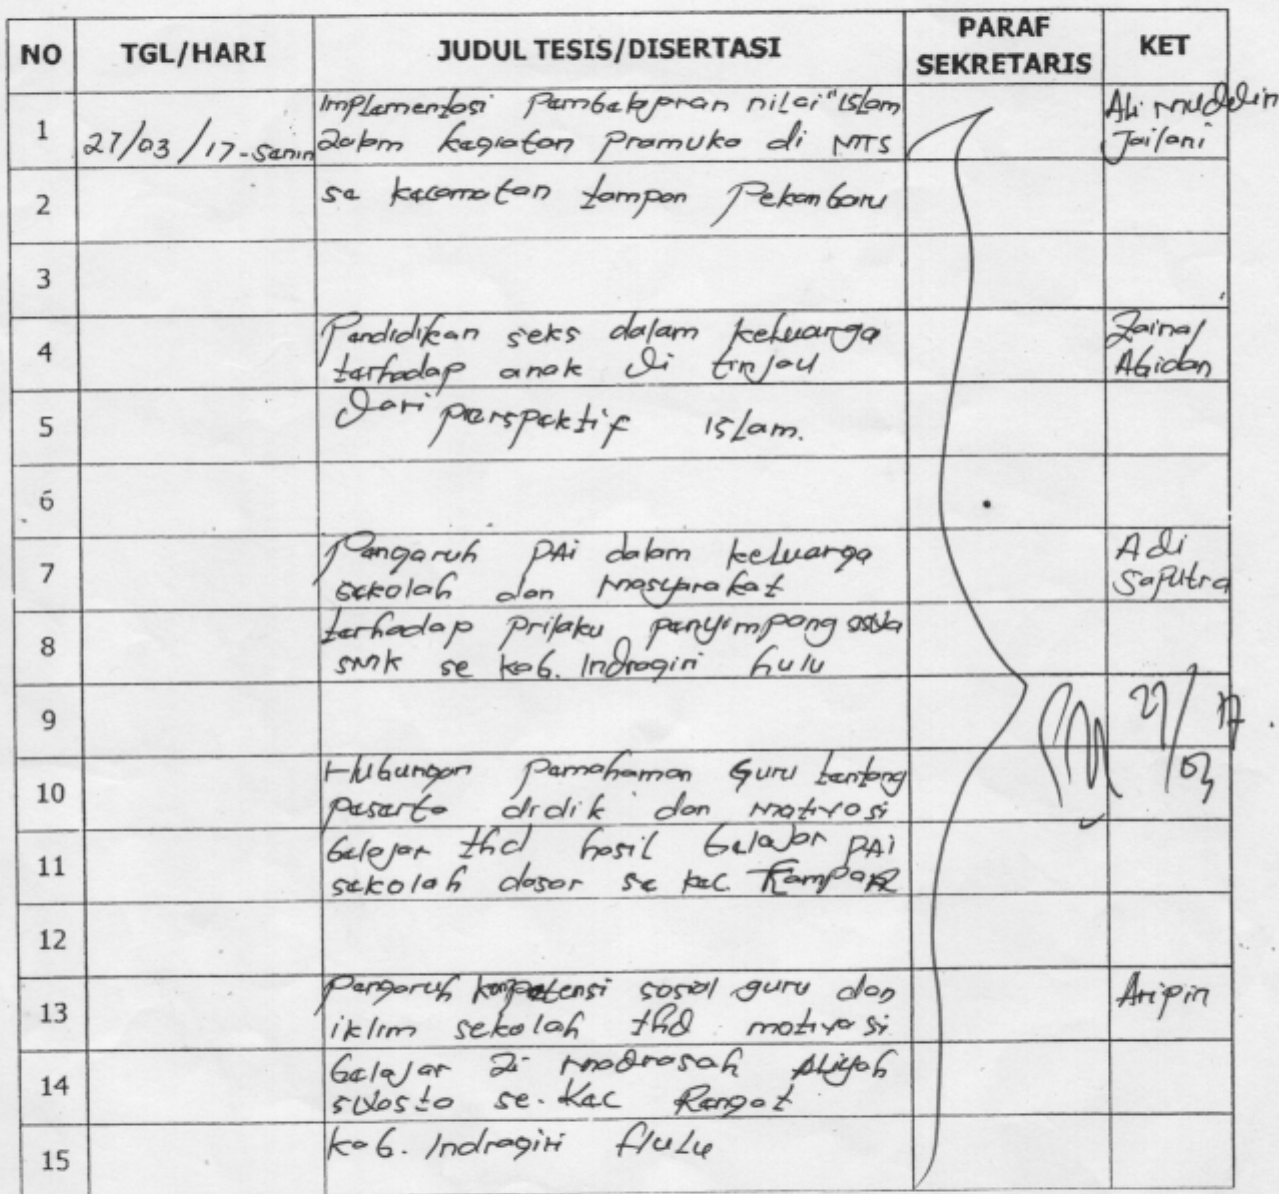 NO TGL/HARI JUDUL TESIS/DISERTASI PARAF SEKRETARIS KET
1 27/03/17-Senin Implementasi Pembelajaran nilai" Islam Ali Muddin
dalam kegiatan Pramuka di MTS Jailani
2 se kecamatan tampan Pekanbaru
3
4 Pendidikan seks dalam keluarga Zainal
terhadap anak di tinjau Abidan
5 dari perspektif Islam.
6
7 Pengaruh PAI dalam keluarga Adi
sekolah dan masyarakat Saputra
8 terhadap prilaku penyimpang siswa
SMK se kab. Indragiri hulu
9 27/03 17
10 Hubungan pemahaman Guru tentang
peserta didik dan motivasi
11 belajar thd hasil belajar PAI
sekolah dasar se kec. Kampar
12
13 Pengaruh kompetensi sosial guru dan Aripin
iklim sekolah thd motivasi
14 belajar di madrasah Aliyah
swasta se. Kec Rengat
15 kab. Indragiri Hulu